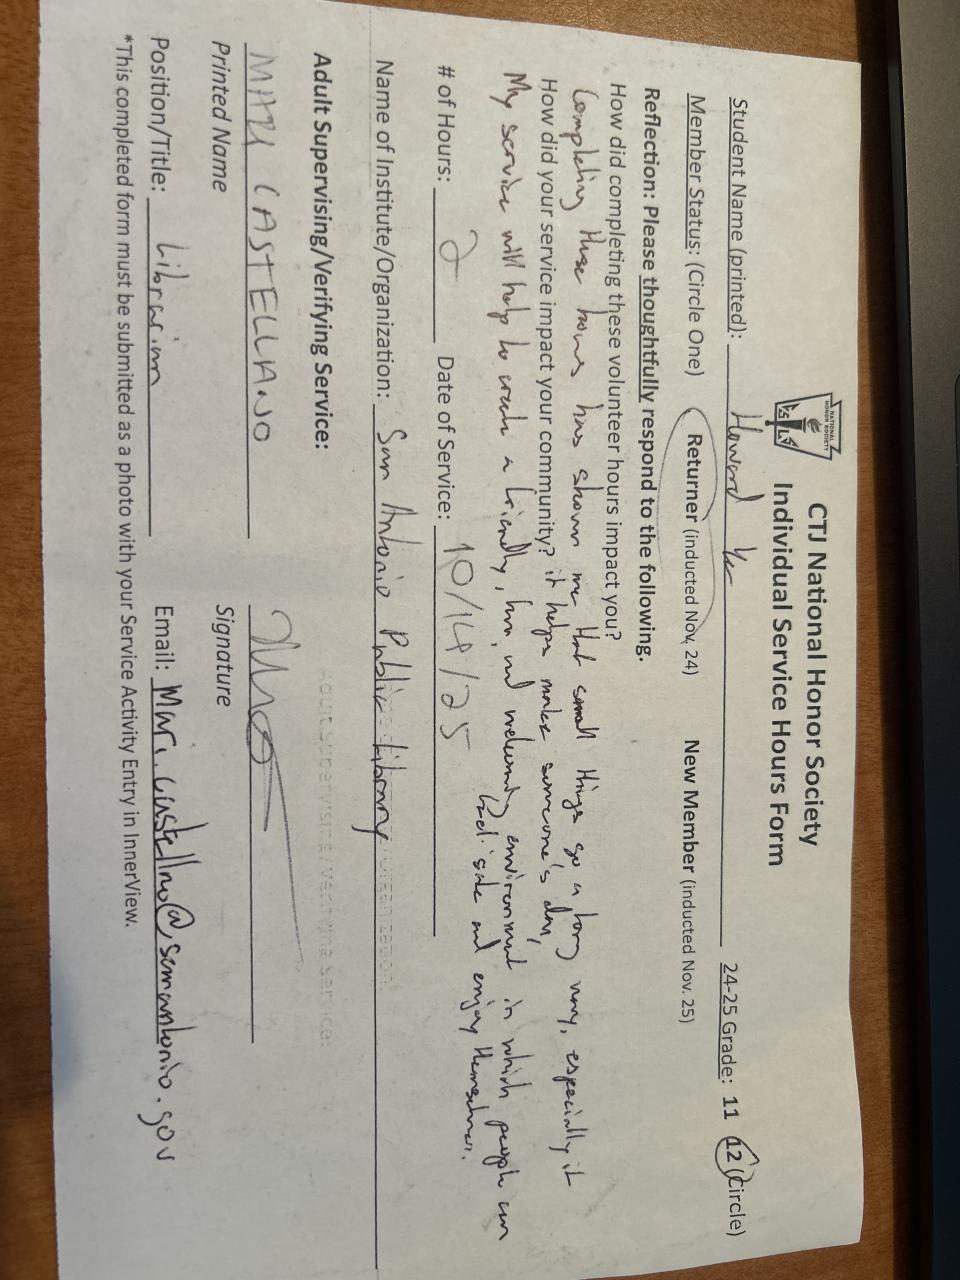 NATIONAL HONOR SOCIETY
CTJ National Honor Society
Individual Service Hours Form
Student Name (printted): Howard Ye 24-25 Grade: 11 12 (Circle)
Member Status: (Circle One) Returner (inducted Nov, 24) New Member (inducted Nov. 25)
Reflection: Please thoughtfully respond to the following.
How did completing these volunteer hours impact you?
Completing these hours has shown me that small things go a long way, especially if
How did your service impact your community? it helps make someone's day,
My service will help to create a friendly, fun, and welcoming environment in which people can
feel safe and enjoy themselves.
# of Hours: 2 Date of Service: 10/14/25
Name of Institute/Organization: San Antonio Public Library
Adult Supervising/Verifying Service:
MARI CASTELLANO
Printed Name Signature
Position/Title: Librarian Email: Mari.Castellano@sanantonio.gov
*This completed form must be submitted as a photo with your Service Activity Entry in InnerView.